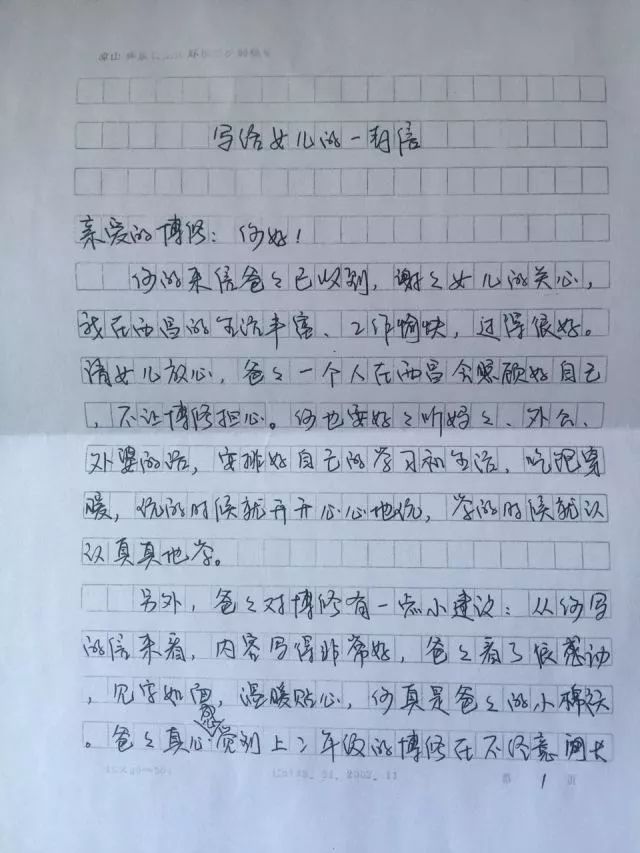 写给女儿的一封信
亲爱的博修：你好！
你的来信爸々已收到，谢々女儿的关心，
我在西昌的生活丰富、工作愉快，过得很好。
请女儿放心，爸々一个人在西昌会照顾好自己
，不让博修担心。你也要好々听妈々、外公、
外婆的话，安排好自己的学习和生活，吃饱穿
暖，玩的时候就开开心心地玩，学的时候就认
认真真地学。
另外，爸々对博修有一点小建议：从你写
的信来看，内容写得非常好，爸々看了很感动
，见字如面，温暖贴心，你真是爸々的小棉袄
。爸々真心感觉到上二年级的博修在不经意间大
第 1 页